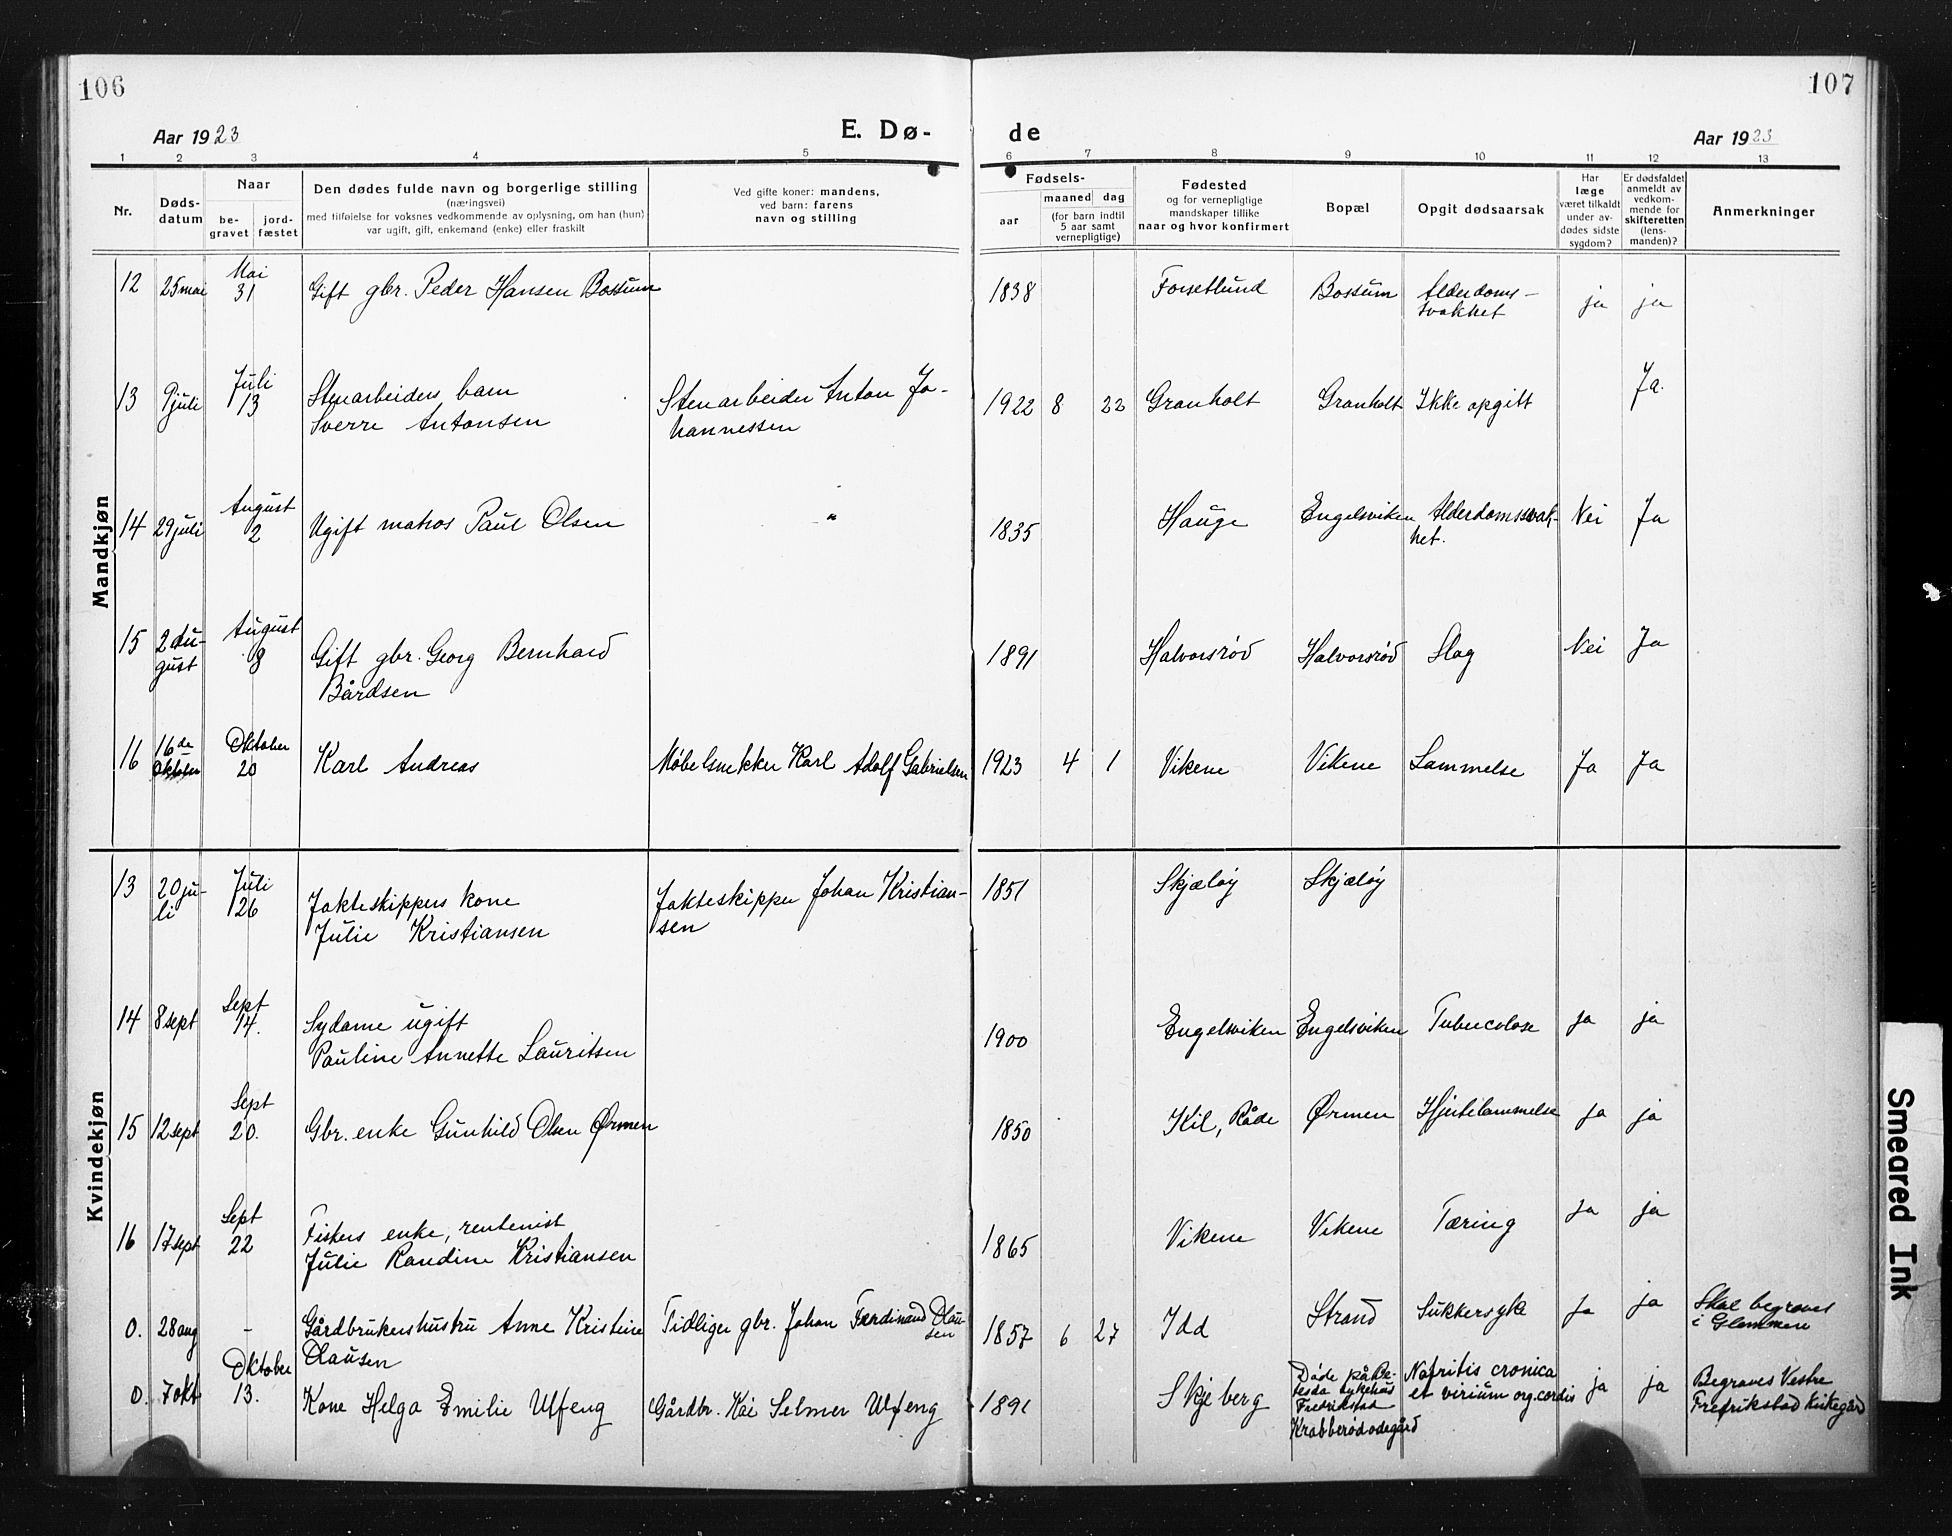 106
107
Aar 1923
E. Dø-
de
Aar 1923
1 2 3 4 5 6 7 8 9 10 11 12 13
Nr.
Døds-
datum
Naar
be-
gravet
jord-
fæstet
Den dødes fulde navn og borgerlige stilling
(næringsvei)
med tilføielse for voksnes vedkommende av oplysning, om han (hun)
var ugift, gift, enkemand (enke) eller fraskilt
Ved gifte koner: mandens,
ved barn: farens
navn og stilling
Fødsels-
aar
maaned dag
(for barn indtil
5 aar samt
vernepligtige)
Fødested
og for vernepligtige
mandskaper tillike
naar og hvor konfirmert
Bopæl
Opgit dødsaarsak
Har
læge
været tilkaldt
under av-
dødes sidste
sygdom?
Er dødsfaldet
anmeldt av
vedkom-
mende for
skifteretten
(lens-
manden)?
Anmerkninger
Mandkjøn
12 25 mai Mai 31 Gift gbr. Peder Hansen Bossum 1838 Forsetlund Bossum Alderdoms-
svakhet ja ja
13 9 juli Juli 13 Stenarbeiders barn Stenarbeider Anton Jo- 1922 8 22 Granholt Granholt Ikke opgitt Ja.
Sverre Antonsen hannessen
14 29 juli August 2 Ugift matros Paul Olsen " 1835 Hauge Engelsviken Alderdomssvak-
het. Nei Ja
15 2 Au-
gust August 8 Gift gbr. Georg Bernhard 1891 Halvorsrød Halvorsrød Slag Nei Ja
Bårdsen
16 16de
Oktober Oktober 20 Karl Andreas Møbelsnekker Karl Adolf Gabrielsen 1923 4 1 Vikene Vikene Lammelse Ja Ja
Kvindekjøn
13 20 ju-
li Juli 26 Jakteskippers kone Jakteskipper Johan Kristian- 1851 Skjæløy Skjæløy
Julie Kristiansen sen
14 8 sept Sept 14. Sydame ugift 1900 Engelsviken Engelsviken Tuberculose ja ja
Pauline Annette Lauritsen
15 12 sept Sept 20. Gbr. enke Gunhild Olsen Ørmen 1850 Kil, Råde Ørmen Hjertelammelse ja ja
16 17 sept Sept 22 Fiskers enke, rentenist 1865 Vikene Vikene Tæring Ja ja
Julie Randine Kristiansen
0. 28 aug - Gårdbrukerhustru Anne Kristine Tidliger gbr. Johan Ferdinand Olau-
sen 1857 6 27 Idd Strand Sukkersyke Ja ja Skal begraves
i Glemmen
Olausen
0. 7 okt Oktober 13. Kone Helga Emilie Ulfeng Gårdbr. Kai Selmer Ulfeng 1891 Skjeberg Døde på Be-
tesda sykehus
Fredrikstad
Krabberødødegård Nafritis cronica
et virium org. cordis ja ja Begraves Vestre
Fredrikstad kirkegård
Smeared Ink